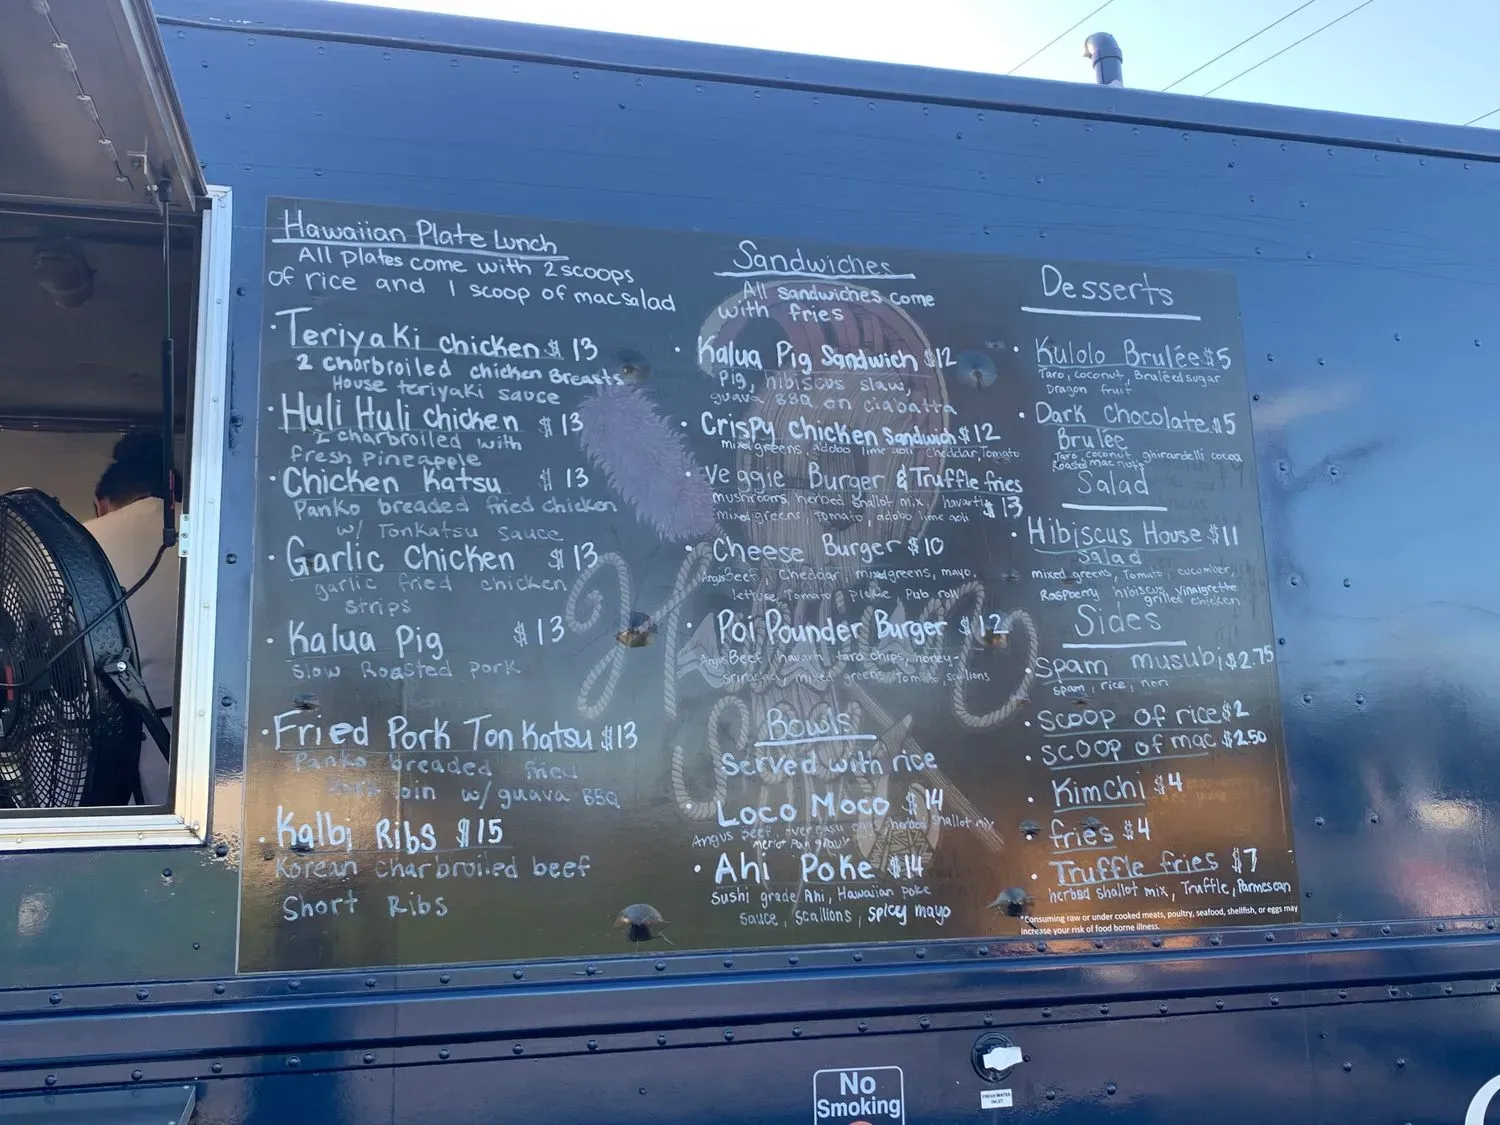 Hawaiian Plate Lunch
All plates come with 2 scoops
of rice and 1 scoop of mac salad
• Teriyaki chicken $ 13
2 charbroiled chicken Breasts
House teriyaki sauce
• Huli Huli chicken $ 13
2 charbroiled with
fresh pineapple
• Chicken Katsu $ 13
Panko breaded fried chicken
w/ Tonkatsu Sauce
• Garlic Chicken $ 13
garlic fried chicken
strips
• Kalua Pig $ 13
Slow Roasted pork
• Fried Pork Ton Katsu $13
Panko breaded fried
w/ guava BBQ
• Kalbi Ribs $15
Korean charbroiled beef
Short Ribs
Sandwiches
All sandwiches come
with fries
• Kalua Pig Sandwich $12
Pig, hibiscus slaw,
guava BBQ on ciabatta
• Crispy chicken Sandwich $12
mixed greens, adobo lime aoli cheddar, Tomato
• Veggie Burger & Truffle fries
mushrooms, herbed shallot mix, havarti $ 13
mixed greens, Tomato, adobo lime aoli
• Cheese Burger $10
Angus Beef, Cheddar, mixed greens, mayo,
lettuse, Tomato, pickle, Pub roll
• Poi Pounder Burger $12
Angus Beef, havarti, taro chips, honey-
Sriracha, mixed greens, Tomato, scallions
Bowls
Served with rice
• Loco Moco $14
Angus beef, over easy herbed shallot mix,
merlot
• Ahi Poke $14
Sushi grade Ahi, Hawaiian poke
sauce, scallions, spicy mayo
Desserts
• Kulolo Brulée $5
Taro, coconut, Bruléed sugar
Dragon fruit
• Dark chocolate $5
Brulée
Taro, coconut, ghirardelli cocoa
Roasted mac nuts
Salad
• Hibiscus House $11
Salad
mixed greens, Tomato, cucumber,
Raspberry hibiscus vinaigrette
grilled chicken
Sides
• Spam musubi $2.75
spam, rice, nori
• scoop of rice $2
• scoop of mac $2.50
• Kimchi $4
• fries $4
• Truffle fries $7
herbed shallot mix, Truffle, Parmesan
*Consuming raw or under cooked meats, poultry, seafood, shellfish, or eggs may
increase your risk of food borne illness.
No
Smoking
FRESH WATER
INLET